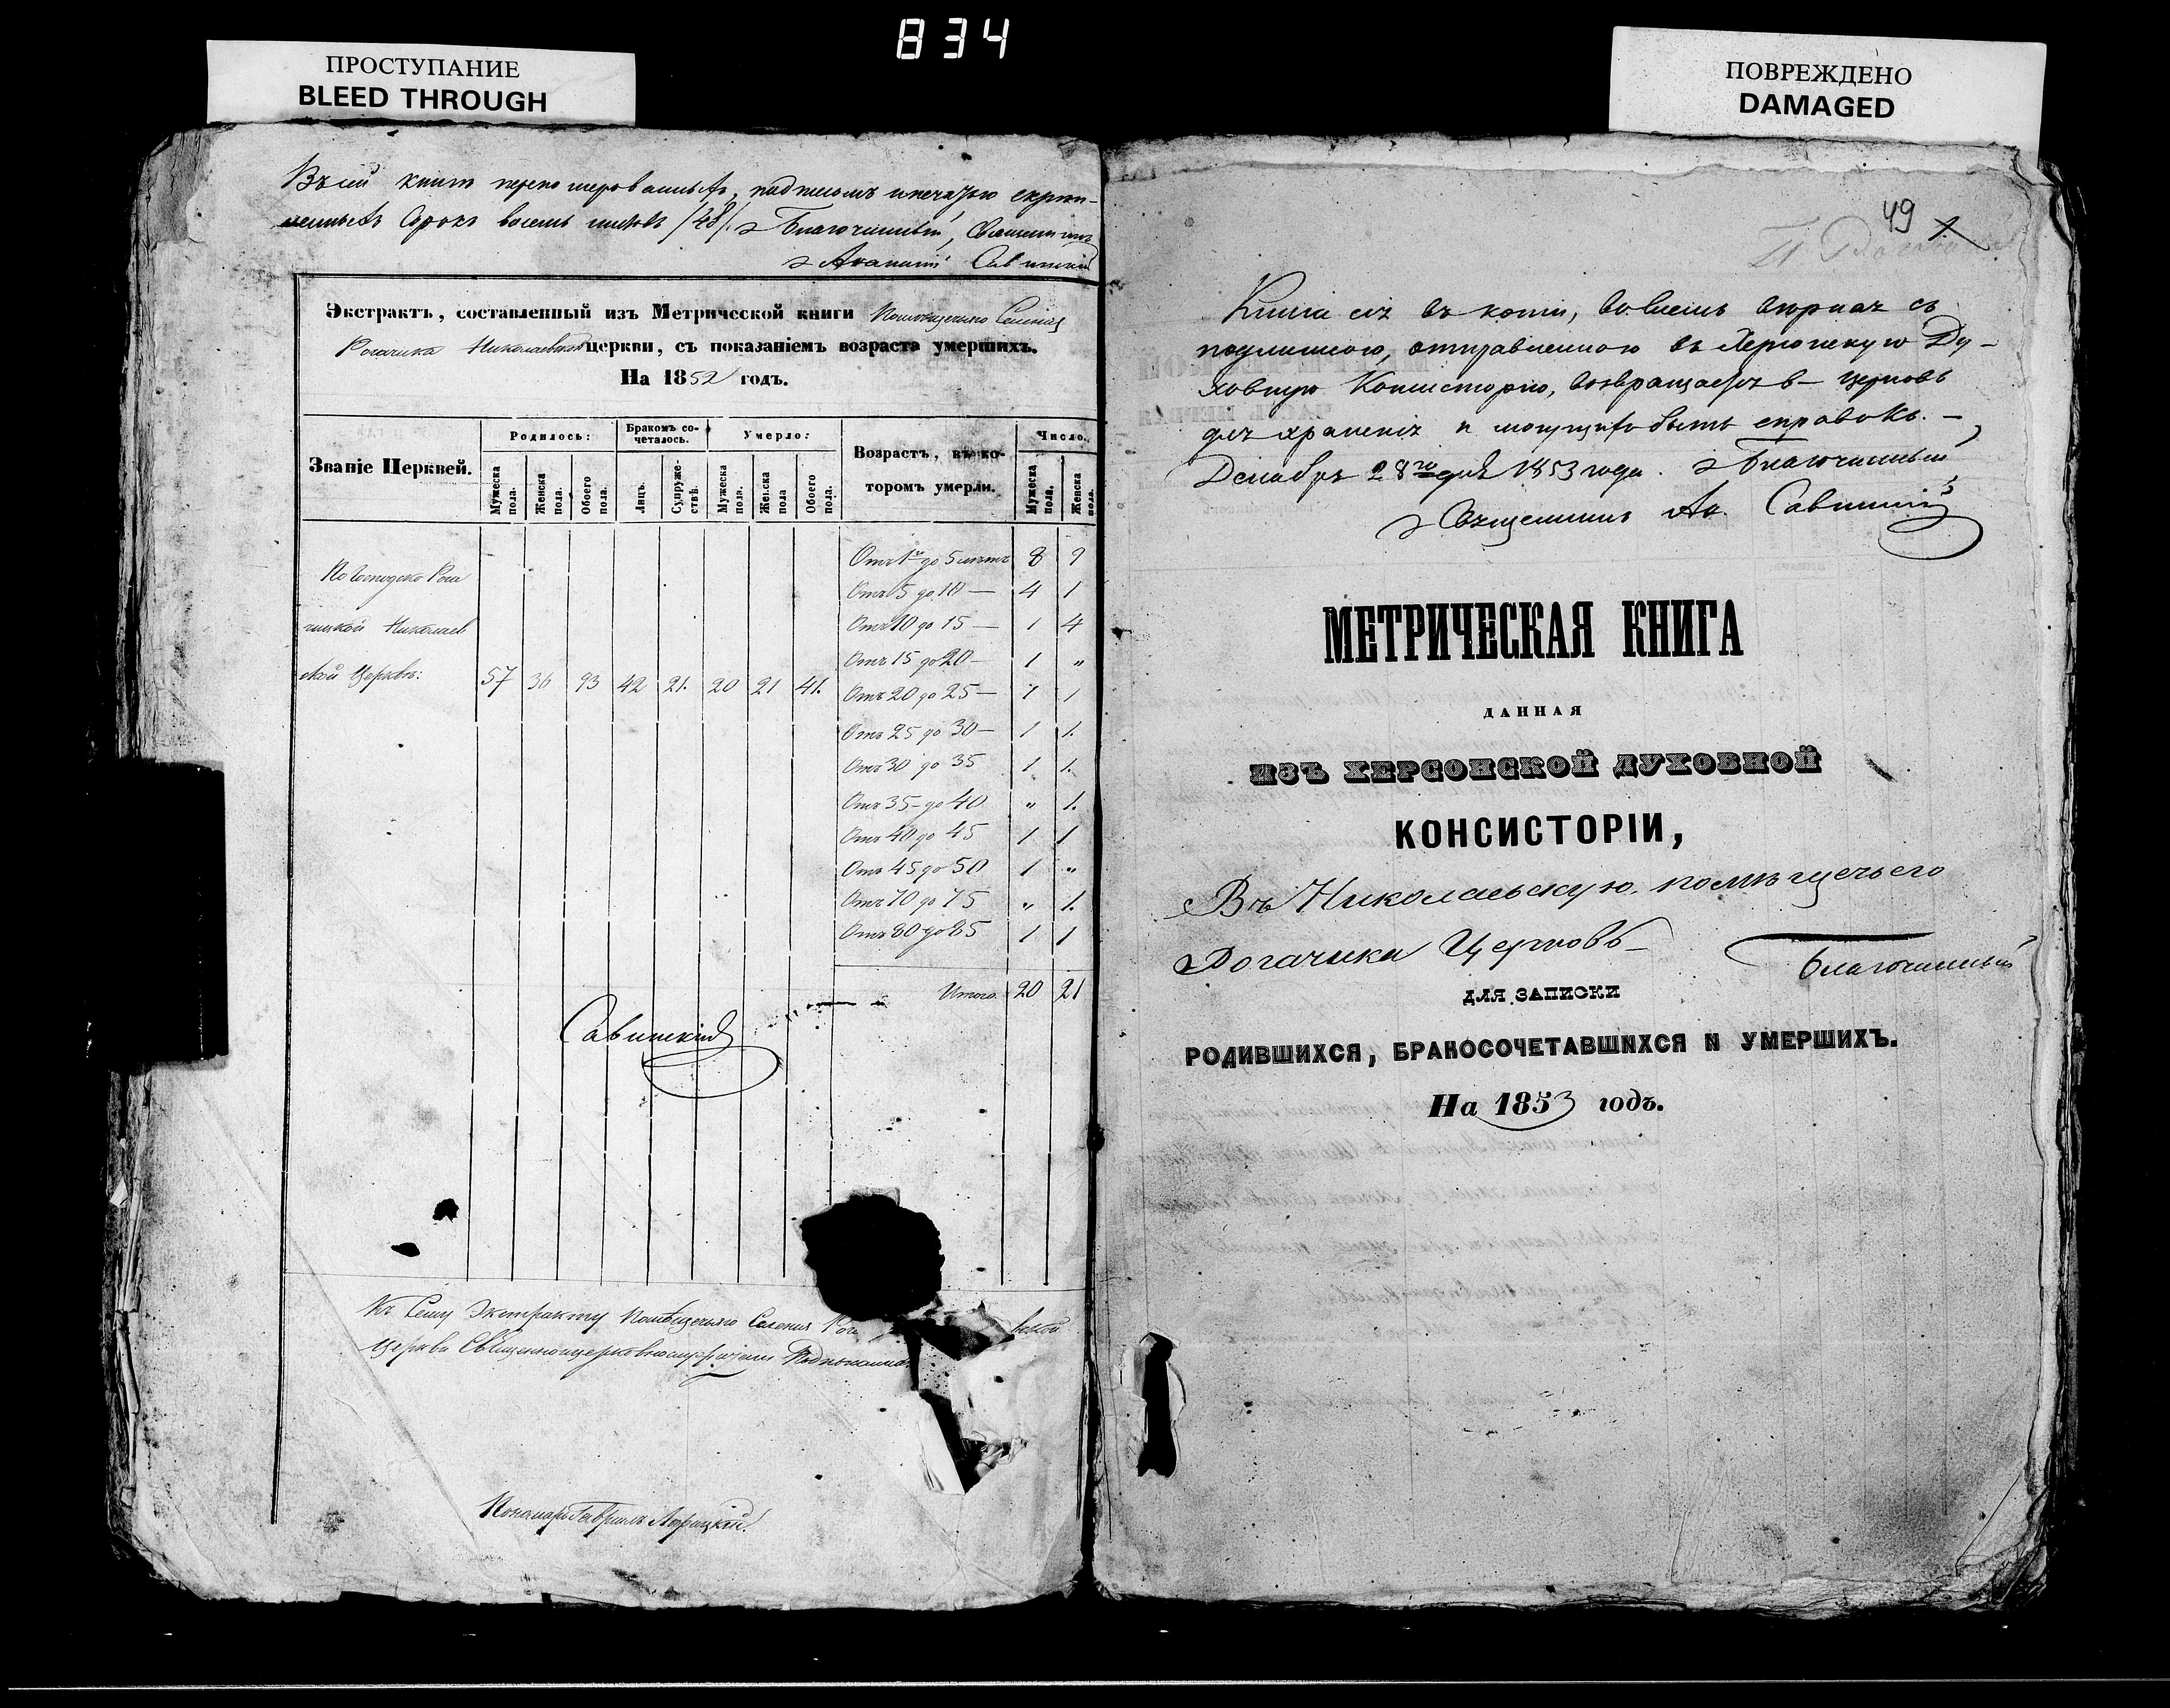 834
ПРОСТУПАНИЕ
BLEED THROUGH
ПОВРЕЖДЕНО
DAMAGED
Въ сей книгѣ перенумерованныхъ, подписомъ и печатью скреп-
ленныхъ сорокъ восемь листовъ /48/. Благочинный, Священникъ
Савинскій
Экстрактъ, составленный изъ Метрической книги Помѣщечьяго Селенія
Рогачика Николаевской церкви, съ показаніемъ возраста умершихъ.
На 1852 годъ.
Званіе Церквей.
Родилось:
Бракомъ со-
четалось.
Умерло:
Возрастъ, въ ко-
торомъ умерли.
Число.
Мужеска пола.
Женска пола.
Обоего пола.
Лицъ.
Супруже-
ствъ.
Мужеска пола.
Женска пола
Обоего пола.
Мужеска пола.
Женска пола.
Рога
чицкой Николаев
ской Церкви:
57 36 93 42 21. 20 21 41.
Отъ 1го до 5 лѣтъ 8 9
Отъ 5 до 10 — 4 1
Отъ 10 до 15 — 1 4
Отъ 15 до 20 — 1 „
Отъ 20 до 25 — 1 1
Отъ 25 до 30 — 1 1.
Отъ 30 до 35 1 1.
Отъ 35 до 40 „ 1.
Отъ 40 до 45 1 1
Отъ 45 до 50 1 „
Отъ 70 до 75 „ 1.
Отъ 80 до 85 1 1
Итого. 20 21
Савинскій
Къ Сему Экстракту Помѣщечьяго Селенія Рога вской
Церкви Священноцерковнослужители
Пономарь Гавриилъ
49
Книга сія въ копіи, вовсемъ вѣрная съ
подлинною, отправленною въ Херсонскую Ду-
ховную Консисторію, возвращается в церковь
для храненія и могущихъ быть справокъ. —
Декабря 28го дня 1853 года. Благочинный
Священникъ Ав. Савинскій
МЕТРИЧЕСКАЯ КНИГА
ДАННАЯ
ИЗЪ ХЕРСОНСКОЙ ДУХОВНОЙ
КОНСИСТОРІИ,
Въ Николаевскую помѣщечьего
Рогачика Церковь
Благочинный
ДЛЯ ЗАПИСКИ
РОДИВШИХСЯ, БРАКОСОЧЕТАВШИХСЯ И УМЕРШИХЪ.
На 1853 годъ.